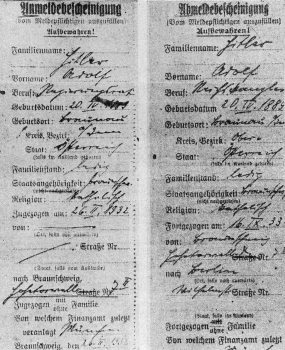 Anmeldebescheinigung
(Vom Meldepflichtigen auszufüllen)
Aufbewahren!
Familienname:
Hitler
Vorname: Adolf
Beruf: Regierungsrat
Geburtsdatum: 20. IV.
Geburtsort: Braunau
Kreis, Bezirk:
Staat: Österreich
(falls im Ausland geboren)
Familienstand: ledig
Staatsangehörigkeit:
Religion: katholisch
Zugezogen am: 26. II. 1932
von
(Ort, falls nur
Straße Nr.
(Staat, falls vom Auslande)
nach Braunschweig,
Straße Nr.
Zugezogen mit ohne Familie
Von welchem Finanzamt zuletzt
veranlagt München
Braunschweig, den 26. II.
Abmeldebescheinigung
(Vom Meldepflichtigen auszufüllen)
Aufbewahren!
Familienname: Hitler
Vorname: Adolf
Beruf: Reichskanzler
Geburtsdatum: 20. IV.
Geburtsort: Braunau
Kreis, Bezirk: Ober
Staat: Österreich
(falls im Ausland geboren)
Familienstand: ledig
Staatsangehörigkeit:
Religion: katholisch
Fortgezogen am: 16. 33
von Braunschweig
Straße Nr.
nach Berlin
(Ort, falls nur
Straße Nr.
(Staat, falls im Auslande)
Fortgezogen mit
ohne Familie
Von welchem Finanzamt zuletzt